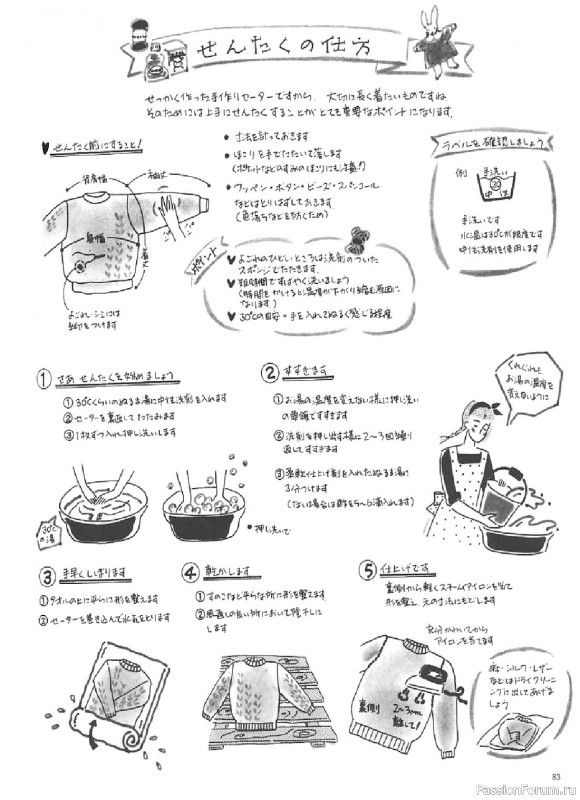 せんたくの仕方
せっかく作った手作りセーターですから、大切に長く着たいものですね
そのためには上手にせんたくすることがとても重要なポイントになります。
♥ せんたく前にすること!
背肩幅
袖丈
身幅
着丈
よごれ・シミには
印をつけます
• 寸法を計っておきます
• ほこりを手でたたいて落します
(ポケットなどのすみのほこりにも注意!!)
• ワッペン・ボタン・ビーズ・スパンコール
などはとりはずしておきます
(色落ちなどを防ぐため)
ラベルを確認しましょう
例
手洗い
30
中性
手洗いです
水温は30℃が限度です
中性洗剤を使用します
ポイント
♥ よごれのひどいところは洗剤のついた
スポンジでたたきます。
♥ 短時間ですばやく洗いましょう
(時間をかけると温度が下がり縮む原因に
なります。)
♥ 30℃の目安=手を入れてぬるく感じる程度
① さあ せんたくを始めましょう
①30℃くらいのぬるま湯に中性洗剤を入れます
②セーターを裏返してたたみます
③1枚ずつ入れ押し洗いします
30℃の湯
• 押し洗いで
② すすぎます
①お湯の温度を変えない様に押し洗い
の要領ですすぎます
②洗剤を押し出す様に2〜3回繰り
返してすすぎます
③柔軟仕上げ剤を入れたぬるま湯に
3分つけます
(ない場合は酢を5〜6滴入れます)
くれぐれも
お湯の温度を
変えないように
③ 手早くしぼります
①タオルの上に平らに形を整えます
②セーターを巻き込んで水気をとります
④ 乾かします
①すのこなど平らな所に形を整えます
②風通しの良い所において陰干しに
します
⑤ 仕上げです
裏側から軽くスチームアイロンを当て
形を整え 元の寸法にもどします
充分かわいてから
アイロンを当てます
裏側
2〜3cm
離して!
麻・シルク・レザー
などはドライクリー
ニングに出してあげま
しょう
83
PassionForum.ru